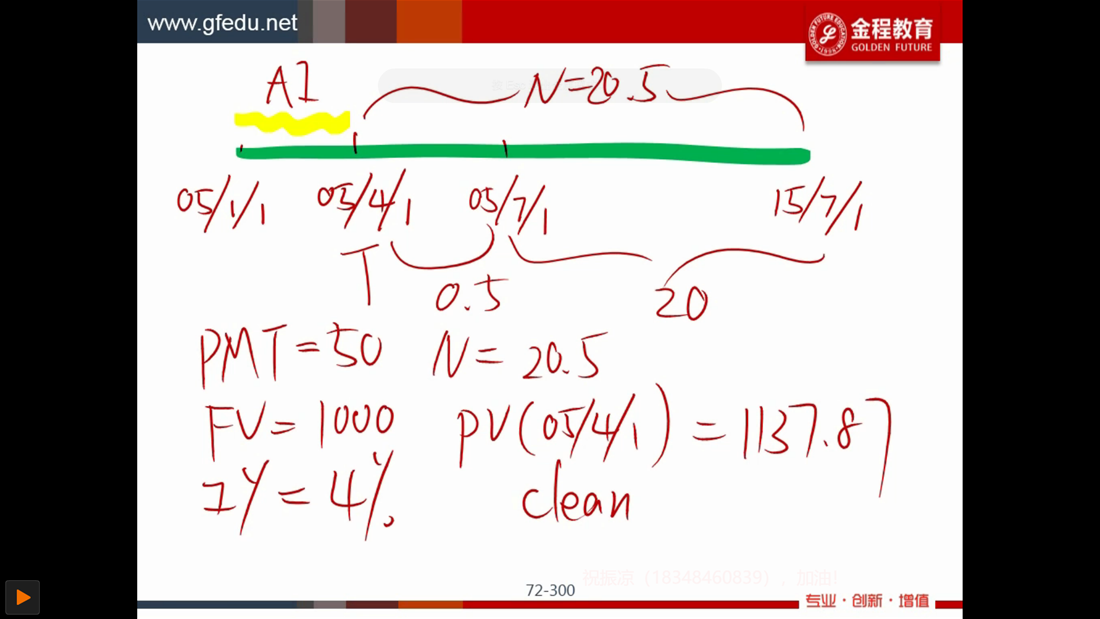 www.gfedu.net
金程教育
GOLDEN FUTURE
AI
N=20.5
05/1/1 05/4/1 05/7/1 15/7/1
T 0.5 20
PMT=50 N=20.5
FV=1000 PV(05/4/1)=1137.87
IY=4%
clean
祝振凉（18348460839），加油!
72-300
专业·创新·增值